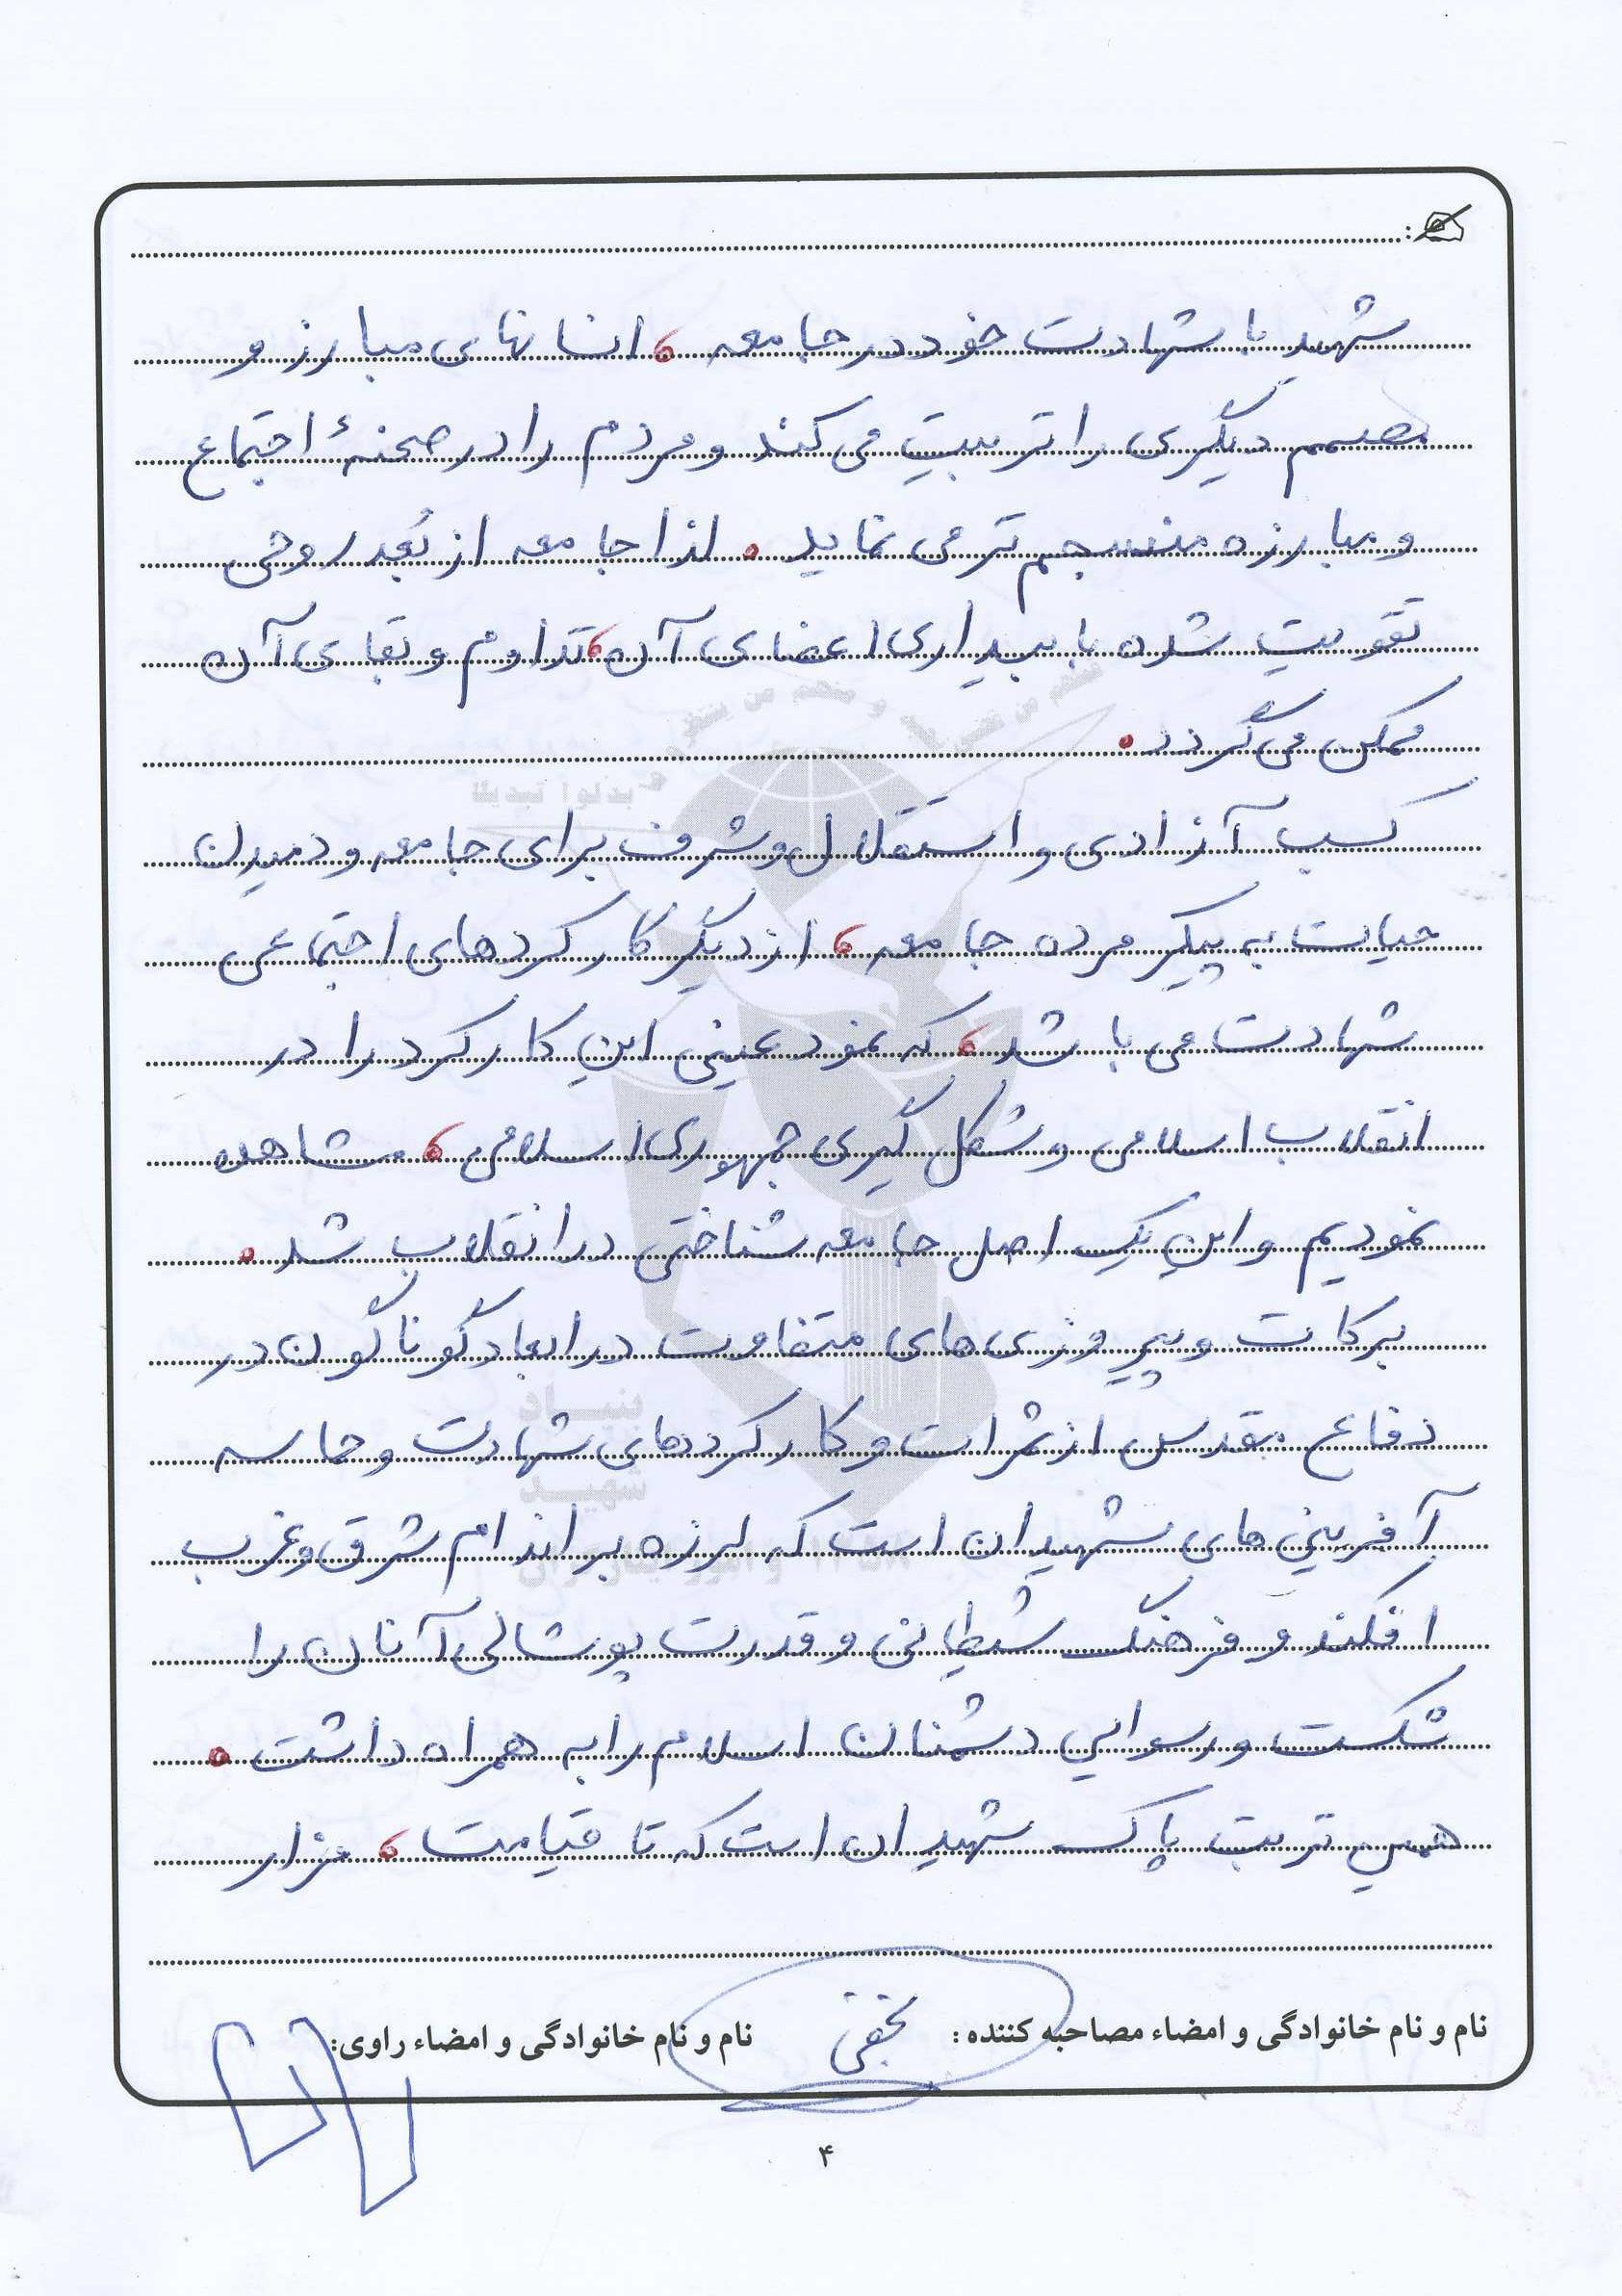 شهید با شهادت خود در جامعه، انسانهای مبارز و
مصمم دیگری را تربیت می کند و مردم را در صحنهٔ اجتماع
و مبارزه منسجم تر می نماید. لذا جامعه از بُعد روحی
تقویت شده با بیداری اعضای آن، تداوم و بقای آن
ممکن می گردد.
کسب آزادی و استقلال و شرف برای جامعه و دمیدن
حیات به پیکر مرده جامعه، از دیگر کارکردهای اجتماعی
شهادت می باشد، که نمود عینی این کارکرد را در
انقلاب اسلامی و شکل گیری جمهوری اسلامی، مشاهده
نمودیم و این یک اصل جامعه شناختی در انقلاب شد.
برکات و پیروزی های متفاوت در ابعاد گوناگون در
دفاع مقدس از ثمرات و کارکردهای شهادت و حماسه
آفرینی های شهیدان است که لرزه بر اندام شرق و غرب
افکند و فرهنگ شیطانی و قدرت پوشالی آنان را
شکست و رسوایی دشمنان اسلام را به همراه داشت.
همین تربت پاک شهیدان است که تا قیامت، مزار
نام و نام خانوادگی و امضاء مصاحبه کننده: نام و نام خانوادگی و امضاء راوی:
۴